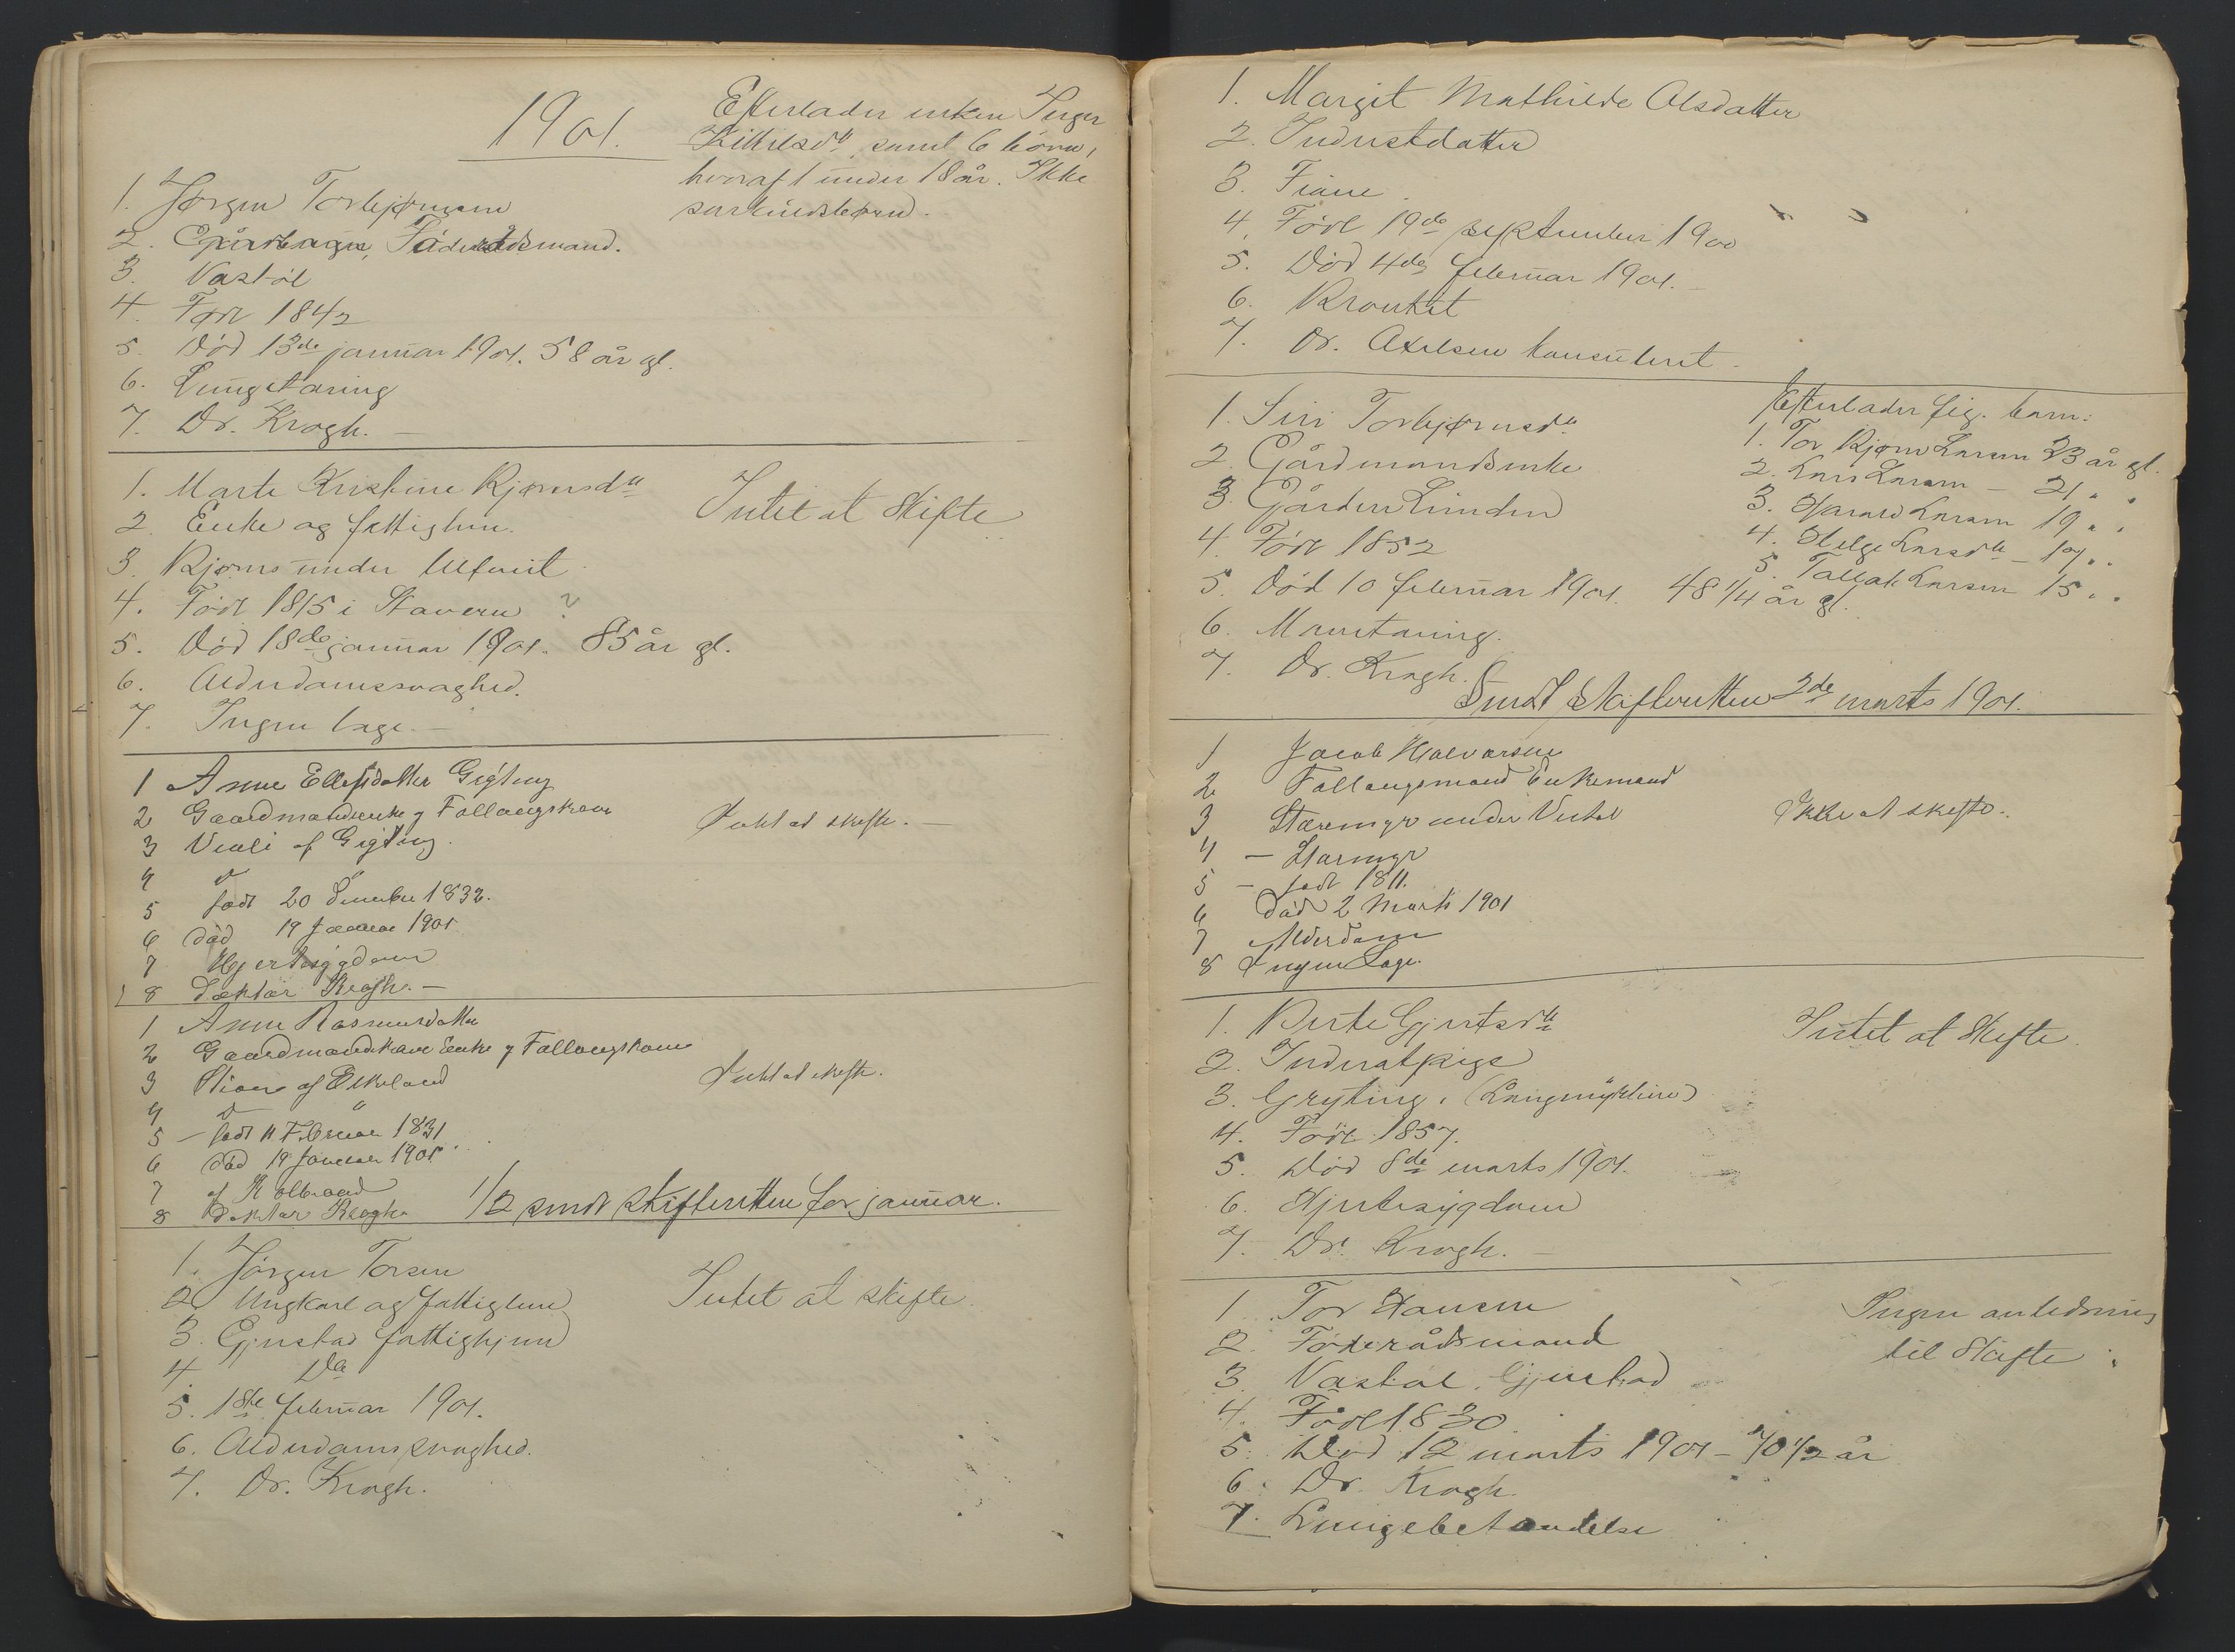 1901.
Efterlader enken Inger
Kittilsdtr, samt 6 börn,
hvoraf 1 under 18 år. Ikke
særkuldsbørn.
1. Jørgen Torbjørnsen
2. Föderådsmand.
3. Vastöl
4. Født 1842
5. Död 13de januar 1901. 58 år gl.
6. Lungetæring
7. Dr. Krogh. —
1. Marte Kristine Bjørnsdtr
Intet at Skifte
2. Enke og fattiglem.
3. under
4. Född 1815 i Stavern ?
5. Död 18de januar 1901. 85 år gl.
6. Alderdomssvaghed.
7. Ingen læge. —
1 Anne Ellefsdatter Gryting
2 Gaardmandsenke & Follaugskone
Intet at skifte. —
3 Veali af Gryting.
4 " "
5 født 20 December 1832.
6 død 19 Januar 1901
7 Hjertesygdom
8 Doktor Krogh. —
1 Anne Rasmusdatter
2 Gaardmandskone Enke & Follougskone
Intet at skifte.
3 af Eikeland
4 " "
5 — født 11 Februar 1831
6 død 19 Januar 1901
7 af Kolbrand
8 Doktor Krogh
1/2 sendt Skifteretten for januar.
1. Jörgen Torsen
2. Ungkarl og fattiglem
Intet at skifte
3. Gjerstad fattighjem
4. Do
5. 1ste februar 1901.
6. Alderdomssvaghed.
7. Dr. Krogh.
1. Margit Mathilde Olsdatter
2. Inderstdatter
3. Fiane.
4. Född 19de september 1900
5. Död 4de februar 1901. —
6. Bronkit
7. Dr. Axelsen konsuleret —
1. Siri Torbjørnsdtr
Efterlader flg. barn:
2. Gårdmandsenke
1. Tor Bjørn Larsen 23 år gl.
3. Gården Lunden
2. Lars Larsen — 21 " "
4. Född 1852
3. Harald Larsen 19 " "
4. Helge Larsdtr — 17 " "
5. Død 10 februar 1901. 48 1/4 år gl.
5. Tallak Larsen 15 " "
6. Mavetæring.
7. Dr. Krogh.
Sendt Skifteretten 2de marts 1901.
1 Jacob Halvorsen
2 Follougsmand Enkemand
3 under
Ikke at skifte.
4 —
5 — født 1811.
6 Død 2 Marts 1901
7 Alderdom
8 Ingen Læge.
1. Berte Gjertsdtr
Intet at Skifte.
2. Inderstpige
3. Gryting. (Langmyrliene)
4. Född 1857.
5. Död 8de marts 1901.
6. Hjertesygdom
7. Dr. Krogh. —
1. Tor Hansen
Ingen anledning
2. Föderådsmand
til Skifte.
3. Vastöl. Gjerstad
4. Född 1830.
5. Död 12 marts 1901 — 70 1/2 år
6. Dr. Krogh.
7. Lungebetændelse